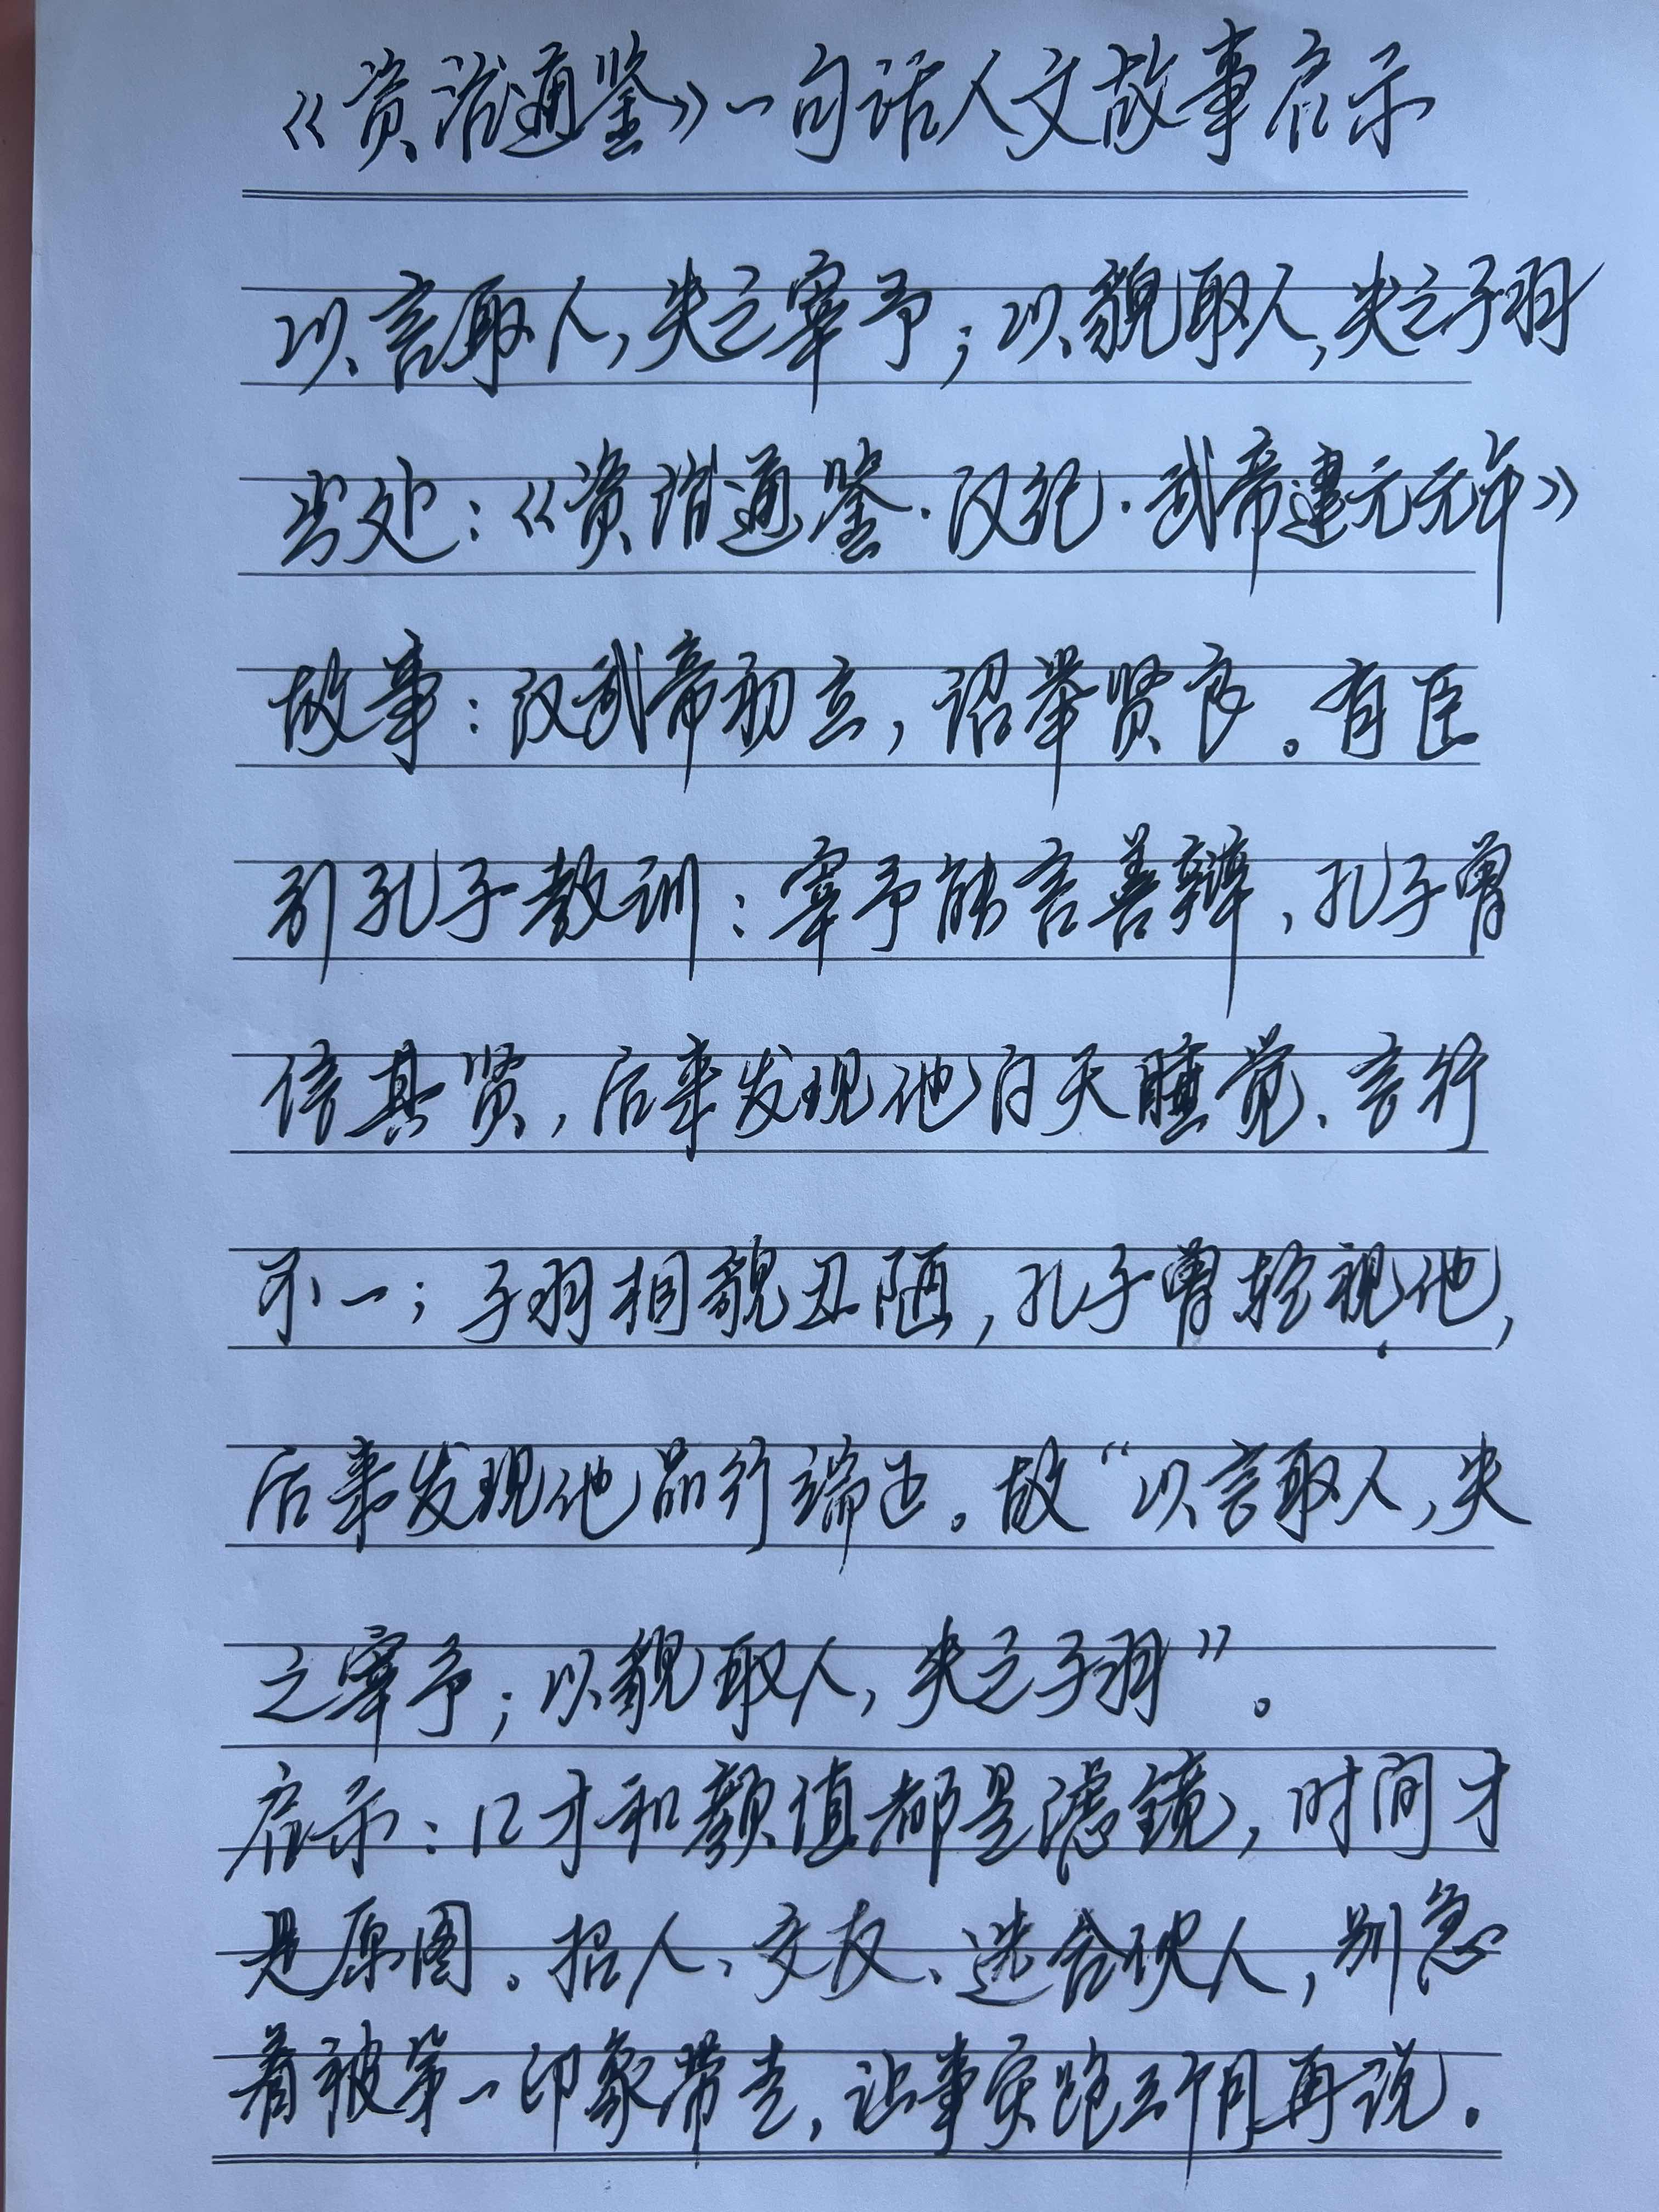 《资治通鉴》一句话人文故事启示
以言取人,失之宰予;以貌取人,失之子羽
出处:《资治通鉴·汉纪·武帝建元元年》
故事:汉武帝初立,诏举贤良。有臣
引孔子教训:宰予能言善辩,孔子曾
信其贤,后来发现他白天睡觉、言行
不一;子羽相貌丑陋,孔子曾轻视他,
后来发现他品行端正。故“以言取人,失
之宰予;以貌取人,失之子羽”。
启示:口才和颜值都是滤镜,时间才
是原图。招人、交友、选合伙人,别急
着被第一印象带走,让事实跑三个月再说。